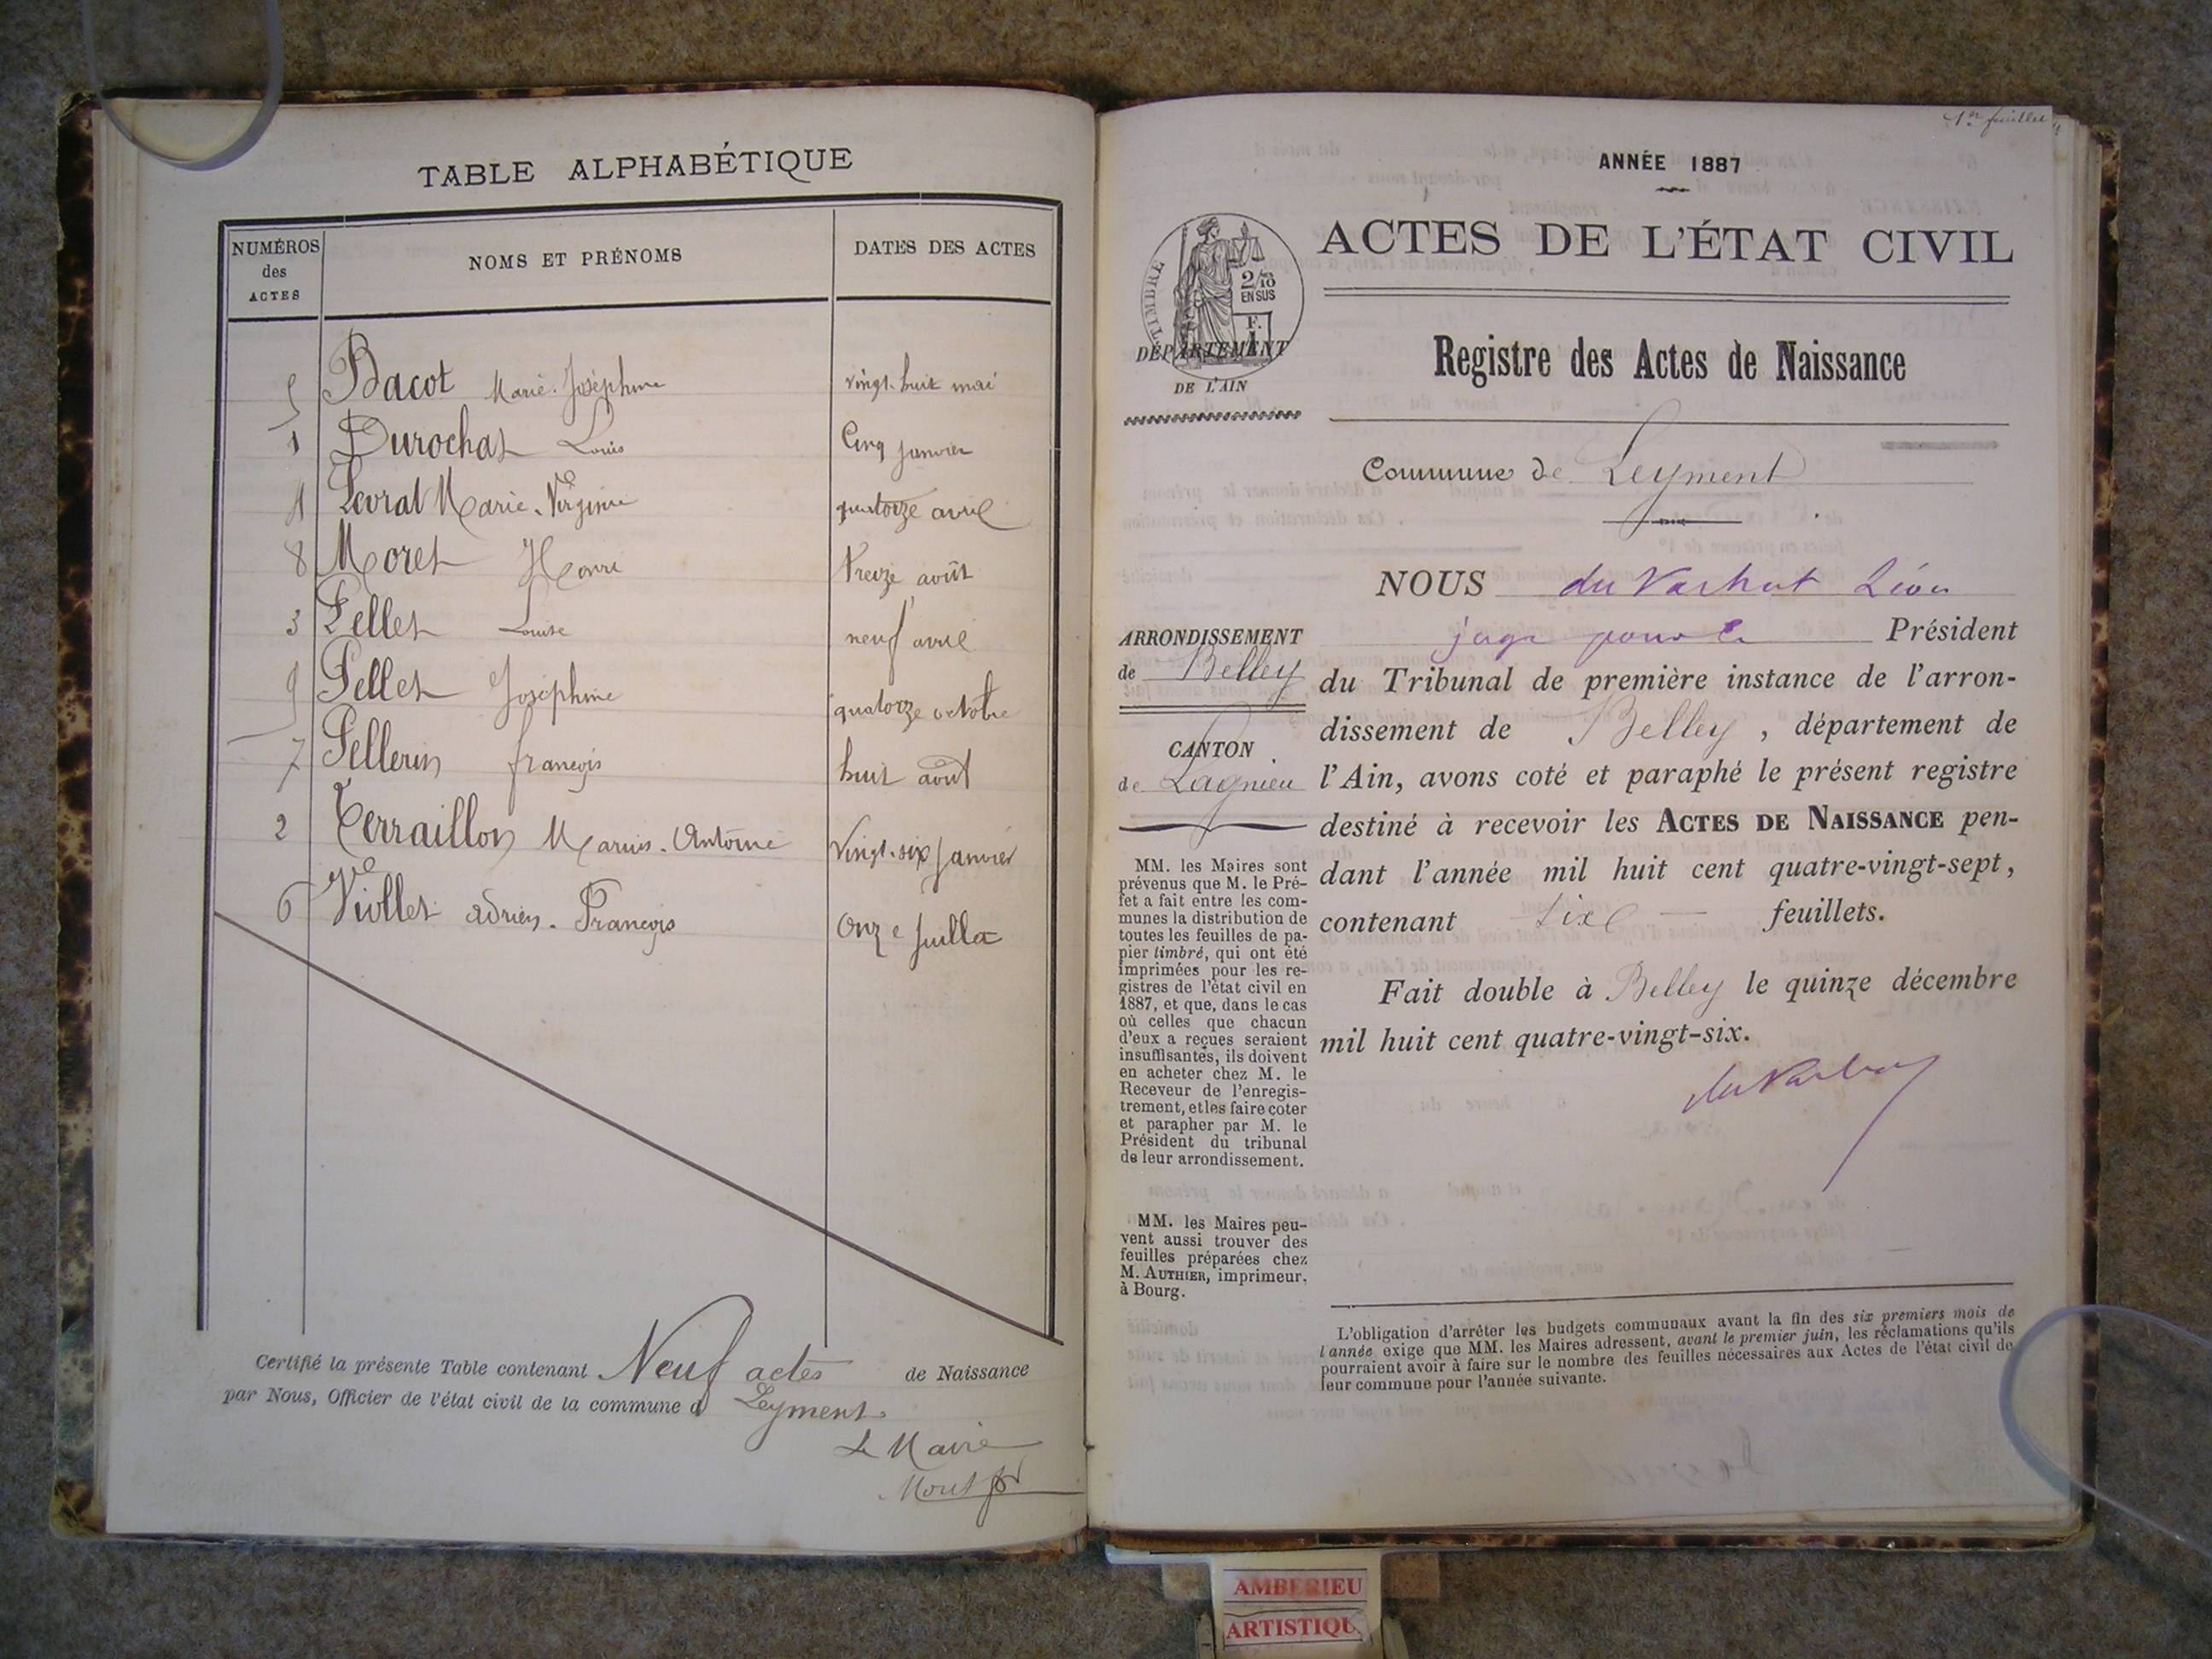 TABLE ALPHABÉTIQUE
NUMÉROS des ACTES NOMS ET PRÉNOMS DATES DES ACTES
5 Bacot Marie-Joséphine vingt-huit mai
1 Durochat Louis Cinq janvier
4 Levrat Marie-Virginie quatorze avril
8 Moret Henri Treize août
3 Pellet Louise neuf avril
9 Pellet Joséphine quatorze octobre
7 Pellerin françois huit août
2 Terraillon Marius-Antoine Vingt-six janvier
6 Viollet adrien-François Onze juillet
Certifié la présente Table contenant Neuf actes de Naissance
par Nous, Officier de l'état civil de la commune d Leyment
Le Maire
1er feuillet
ANNÉE 1887
ACTES DE L'ÉTAT CIVIL
TIMBRE
2/10
EN SUS
F.
1
DÉPARTEMENT
DE L'AIN
Registre des Actes de Naissance
Commune de Leyment
ARRONDISSEMENT
de Belley
CANTON
de Lagnieu
MM. les Maires sont
prévenus que M. le Pré-
fet a fait entre les com-
munes la distribution de
toutes les feuilles de pa-
pier timbré, qui ont été
imprimées pour les re-
gistres de l'état civil en
1887, et que, dans le cas
où celles que chacun
d'eux a reçues seraient
insuffisantes, ils doivent
en acheter chez M. le
Receveur de l'enregis-
trement, et les faire coter
et parapher par M. le
Président du tribunal
de leur arrondissement.
MM. les Maires peu-
vent aussi trouver des
feuilles préparées chez
M. AUTHIER, imprimeur,
à Bourg.
NOUS du Vachat Léon
juge pour le Président
du Tribunal de première instance de l'arron-
dissement de Belley, département de
l'Ain, avons coté et paraphé le présent registre
destiné à recevoir les ACTES DE NAISSANCE pen-
dant l'année mil huit cent quatre-vingt-sept,
contenant feuillets.
Fait double à Belley le quinze décembre
mil huit cent quatre-vingt-six.
du Vachat
L'obligation d'arrêter les budgets communaux avant la fin des six premiers mois de
l'année exige que MM. les Maires adressent, avant le premier juin, les réclamations qu'ils
pourraient avoir à faire sur le nombre des feuilles nécessaires aux Actes de l'état civil de
leur commune pour l'année suivante.
AMBERIEU
ARTISTIQU